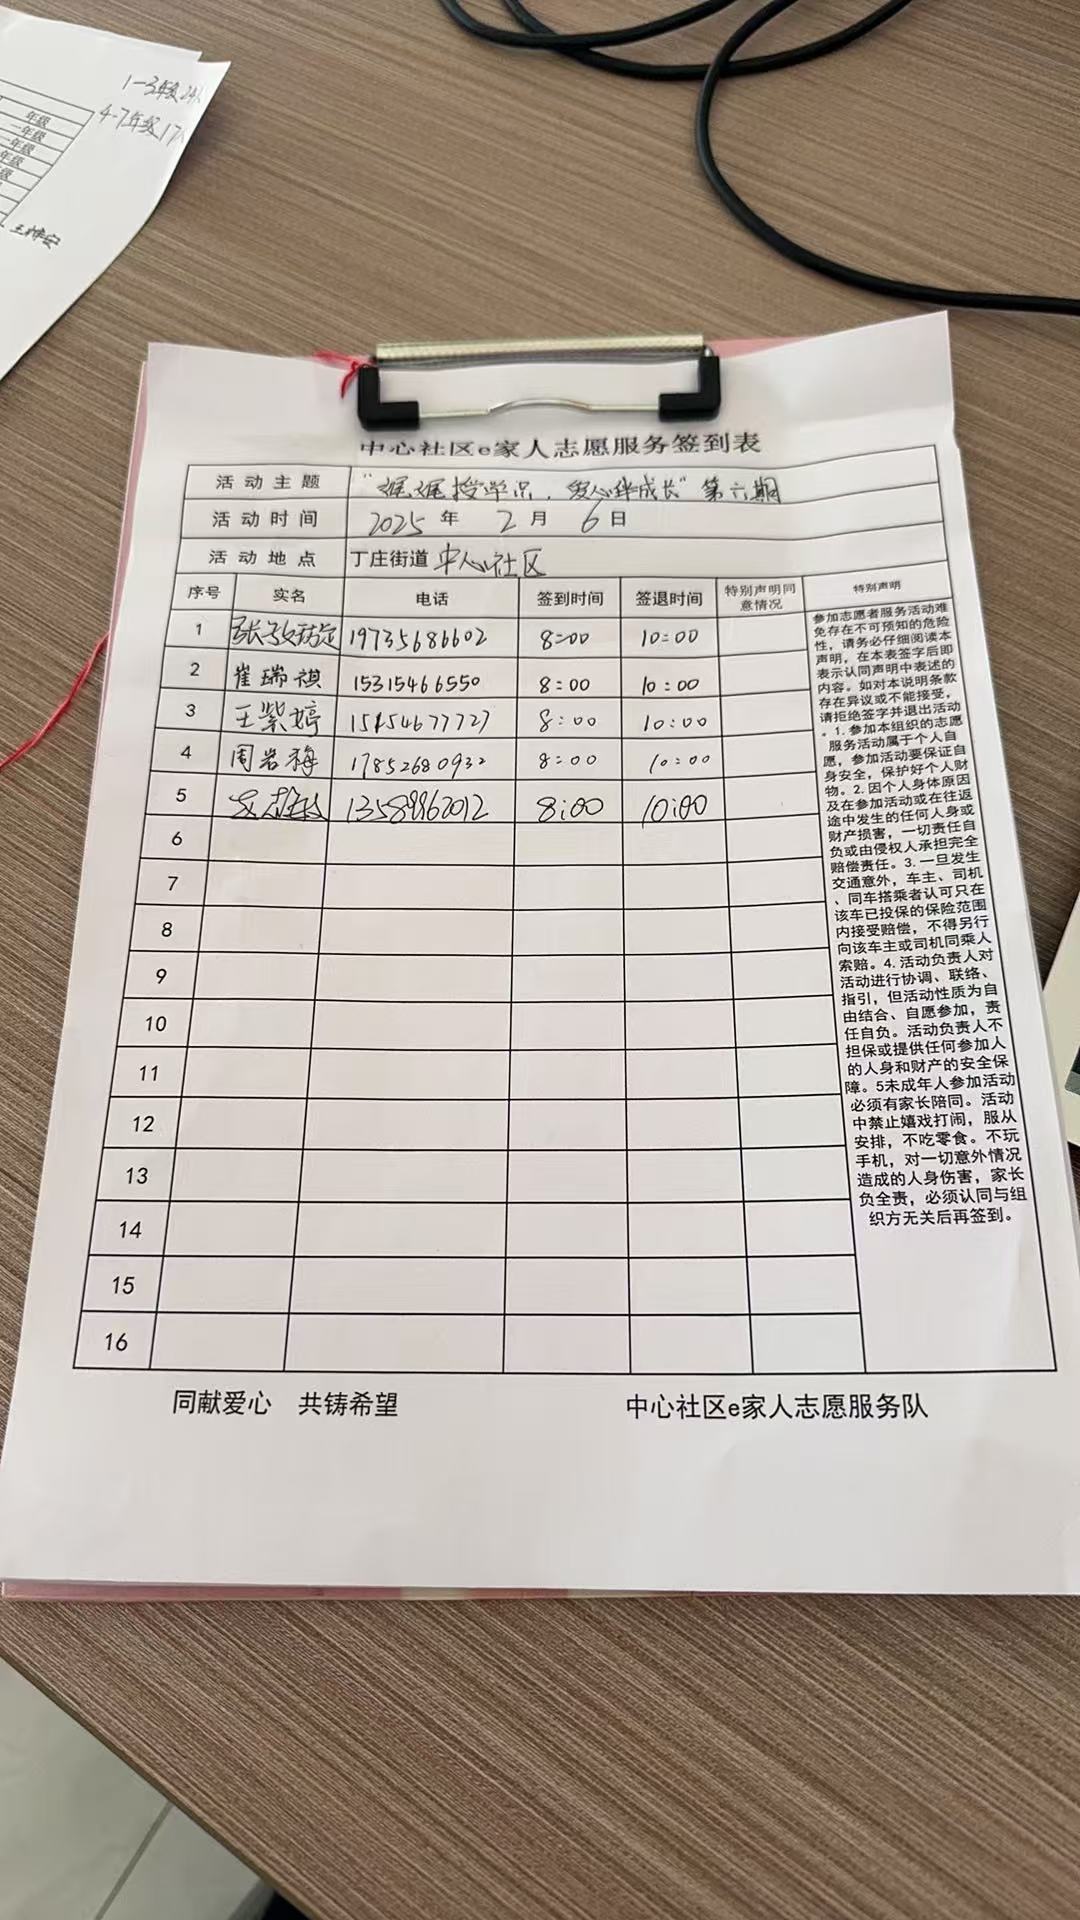 1-3年级24人
4-7年级17人
年级
一年级
一年级
年级
年级
中心社区e家人志愿服务签到表
活动主题 "娓娓授学识,爱心伴成长"第六期
活动时间 2025年 2月 6日
活动地点 丁庄街道中心社区
序号 实名 电话 签到时间 签退时间 特别声明同意情况 特别声明
1 19735686602 8:00 10:00
2 崔瑞祺 15315466550 8:00 10:00
3 王紫婷 15154677727 8:00 10:00
4 周岩梅 17852680932 8:00 10:00
5 13589962012 8:00 10:00
6
7
8
9
10
11
12
13
14
15
16
参加志愿者服务活动难
免存在不可预知的危险
性,请务必仔细阅读本
声明,在本表签字后即
表示认同声明中表述的
内容。如对本说明条款
存在异议或不能接受,
请拒绝签字并退出活动
。1.参加本组织的志愿
服务活动属于个人自
愿,参加活动要保证自
身安全,保护好个人财
物。2.因个人身体原因
及在参加活动或在往返
途中发生的任何人身或
财产损害,一切责任自
负或由侵权人承担完全
赔偿责任。3.一旦发生
交通意外,车主、司机
、同车搭乘者认可只在
该车已投保的保险范围
内接受赔偿,不得另行
向该车主或司机同乘人
索赔。4.活动负责人对
活动进行协调、联络、
指引,但活动性质为自
由结合、自愿参加,责
任自负。活动负责人不
担保或提供任何参加人
的人身和财产的安全保
障。5未成年人参加活动
必须有家长陪同。活动
中禁止嬉戏打闹,服从
安排,不吃零食。不玩
手机,对一切意外情况
造成的人身伤害,家长
负全责,必须认同与组
织方无关后再签到。
同献爱心 共铸希望 中心社区e家人志愿服务队